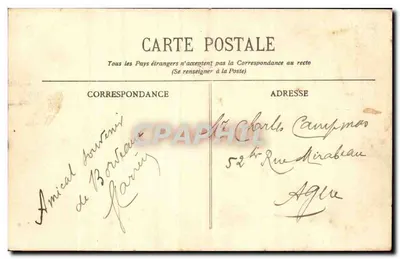 CARTE POSTALE
Tous les Pays étrangers n'acceptent pas la Correspondance au recto
(Se renseigner à la Poste)
CORRESPONDANCE
ADRESSE
Amical souvenir
de Bordeaux
CPAPHIL
Mr Charles Campmas
52 bis Rue Mirabeau